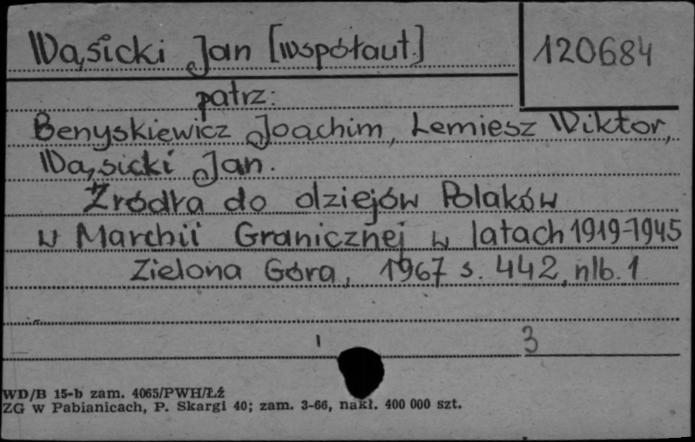 Wąsicki Jan [współaut.] 120684
patrz:
Benyskiewicz Joachim, Lemiesz Wiktor,
Wąsicki Jan.
Źródła do dziejów Polaków
w Marchii Granicznej w latach 1919-1945
Zielona Góra, 1967 s. 442, nlb. 1
1 3
WD/B 15-b zam. 4065/PWH/Łź
ZG w Pabianicach, P. Skargi 40; zam. 3-66, nakł. 400 000 szt.